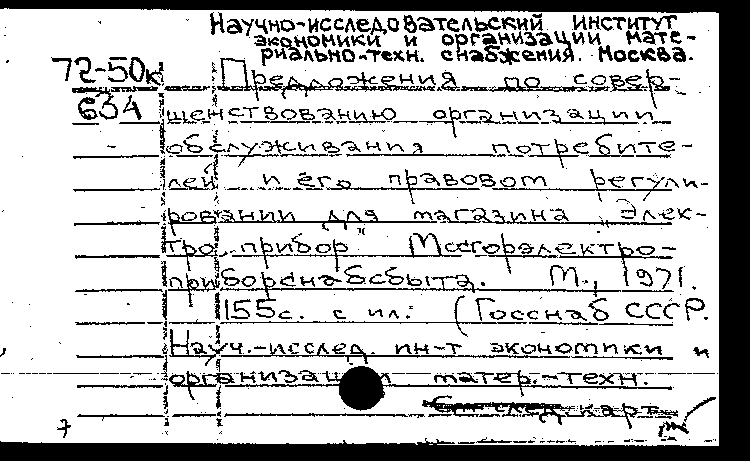 Научно-исследовательский институт
экономики и организации мате-
риально-техн. снабжения. Москва.
72-50к Предложения по совер-
634 шенствованию организации
обслуживания потребите-
лей и его правовом регули-
ровании для магазина „Элек-
троприбор" Мосгорэлектро-
приборснабсбыта. М., 1971.
155с. с ил. (Госснаб СССР.
Науч.-исслед. ин-т экономики и
организации матер.-техн.
См след. карт.
7